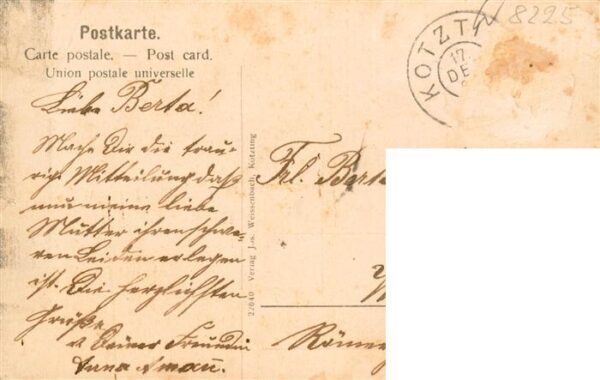 Postkarte.
Carte postale. — Post card.
Union postale universelle
N 8225
KOTZT
17.
DE
Liebe Berta!
Mache Dir die trau-
rige Mitteilung daß
nun meine liebe
Mutter ihren schwe-
ren Leiden erlegen
ist. Die herzlichsten
Grüße
v Deiner Freundin
Anna Aman̄.
22640 Verlag Jos. Weissenbach, Kötzting
Frl. Berta
Römer